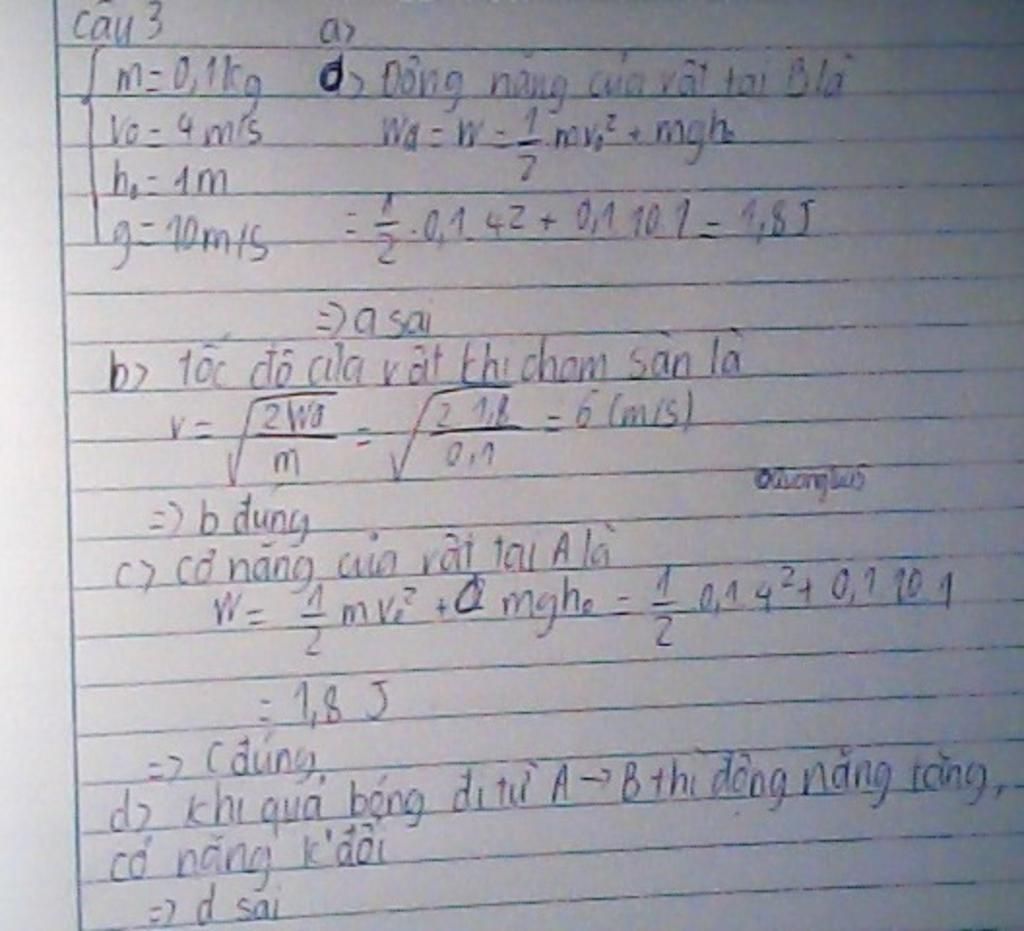 Câu 3 a>
m = 0,1kg a> Động năng của vật tại B là
v₀ = 4 m/s Wđ = W = 1/2 mv₀² + mgh₀
h₀ = 1m
g = 10m/s = 1/2 . 0,1 4² + 0,1 10 1 = 1,8J
=> a sai
b> tốc độ của vật khi chạm sàn là
v = √(2Wđ/m) = √(2 1,8/0,1) = 6 (m/s)
=> b đúng
c> cơ năng của vật tại A là
W = 1/2 mv₀² + mgh₀ = 1/2 0,1 4² + 0,1 10 1
= 1,8 J
=> c đúng
d> khi quả bóng đi từ A → B thì động năng tăng,
cơ năng k' đổi
=> d sai